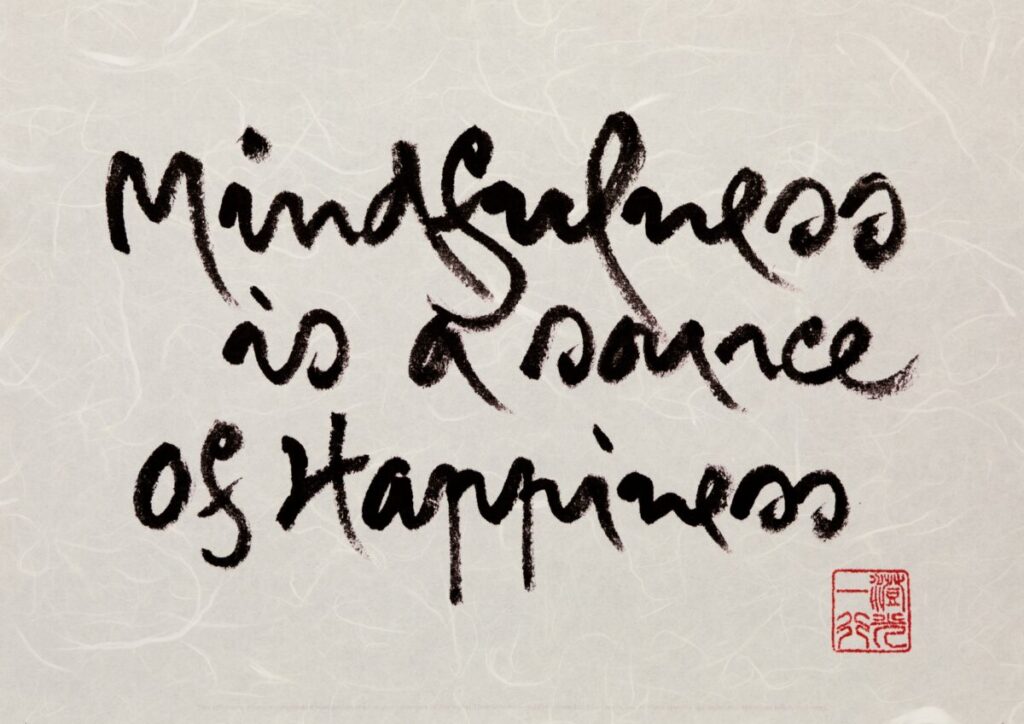 Mindfulness
is a source
of Happiness
澄光
一行